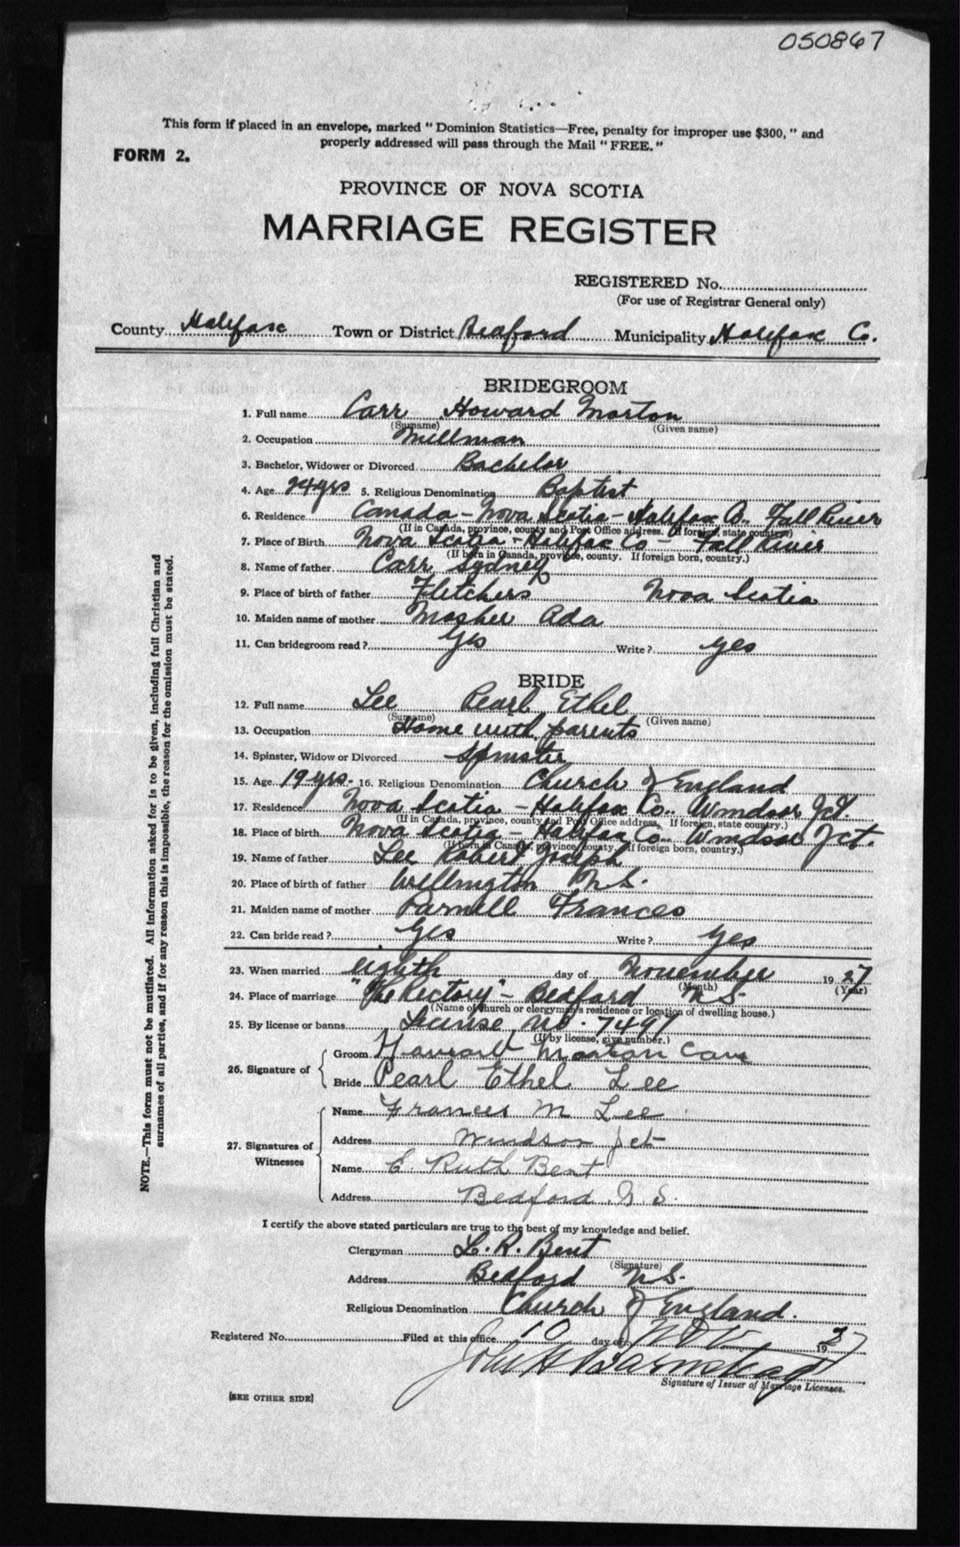 050867
This form if placed in an envelope, marked "Dominion Statistics—Free, penalty for improper use $300," and
properly addressed will pass through the Mail "FREE."
FORM 2.
PROVINCE OF NOVA SCOTIA
MARRIAGE REGISTER
REGISTERED No.
(For use of Registrar General only)
County Halifax Town or District Bedford Municipality Halifax Co.
BRIDEGROOM
1. Full name Carr Howard Morton
(Surname) (Given name)
2. Occupation Millman
3. Bachelor, Widower or Divorced Bachelor
4. Age 24 yrs 5. Religious Denomination Baptist
6. Residence Canada - Nova Scotia - Halifax Co. Fall River
(If in Canada, province, county and Post Office address. If foreign, state country.)
7. Place of Birth Nova Scotia - Halifax Co - Fall River
(If born in Canada, province, county. If foreign born, country.)
8. Name of father Carr Sydney
9. Place of birth of father Fletchers Nova Scotia
10. Maiden name of mother Mosher Ada
11. Can bridegroom read? Yes Write? Yes
BRIDE
12. Full name Lee Pearl Ethel
(Surname) (Given name)
13. Occupation Home with parents
14. Spinster, Widow or Divorced Spinster
15. Age 19 yrs. 16. Religious Denomination Church of England
17. Residence Nova Scotia - Halifax Co. Windsor Jct.
(If in Canada, province, county and Post Office address. If foreign, state country.)
18. Place of birth Nova Scotia - Halifax Co. Windsor Jct.
(If born in Canada, province, county. If foreign born, country.)
19. Name of father Lee Robert Joseph
20. Place of birth of father Wellington N.S.
21. Maiden name of mother Parnell Frances
22. Can bride read? Yes Write? Yes
23. When married eighth day of November 1927
(Month) (Year)
24. Place of marriage "The Rectory" - Bedford N.S.
(Name of church or clergyman's residence or location of dwelling house.)
25. By license or banns License No. 7497
(If by license, give number.)
26. Signature of
Groom Howard Morton Carr
Bride Pearl Ethel Lee
27. Signatures of Witnesses
Name Frances M Lee
Address Windsor Jct
Name E Ruth Bent
Address Bedford N.S.
I certify the above stated particulars are true to the best of my knowledge and belief.
Clergyman L. R. Bent
(Signature)
Address Bedford N.S.
Religious Denomination Church of England.
Registered No. Filed at this office 10 day of Nov 1927
John H Barnstead
Signature of Issuer of Marriage Licenses.
[SEE OTHER SIDE]
NOTE.—This form must not be mutilated. All information asked for is to be given, including full Christian and
surnames of all parties, and if for any reason this is impossible, the reason for the omission must be stated.